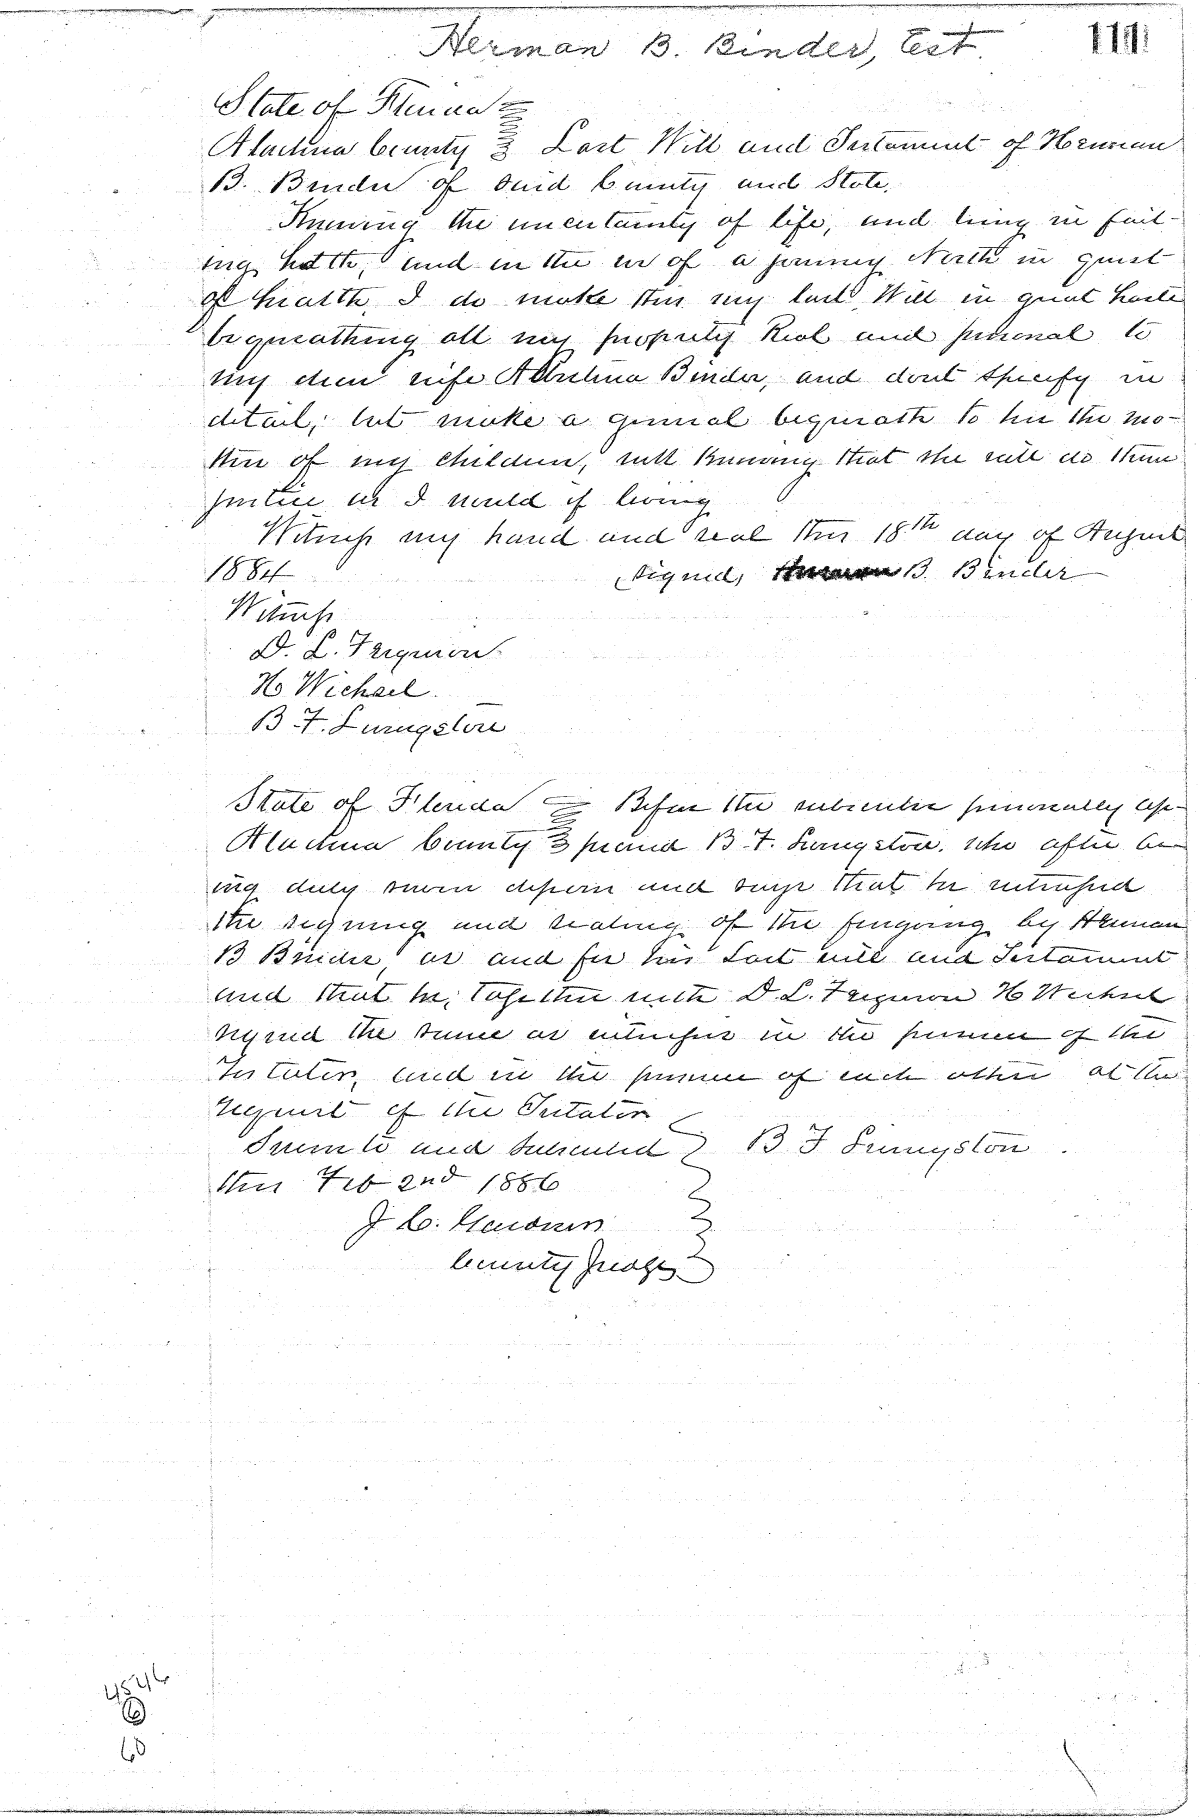 Herman B. Binder, Test.
State of Florida
Alachua County } Last Will and Testament of Herman
B. Binder of said County and State.
Knowing the uncertainty of life, and being in fail-
ing health, and on the eve of a journey North in quest
of health, I do make this my last Will in great haste
bequeathing all my property Real and personal to
my dear wife Binder, and dont specify in
detail; but make a general bequeath to her the mo-
ther of my children, well knowing that she will do them
justice as I would if living
Witness my hand and seal this 18th day of August
1884 signed, Herman B. Binder
Witness
D. L. Ferguson
H Wichsel.
B. F. Livingston
State of Florida } Before the subscriber personally ap-
Alachua County } peared B. F. Livingston. who after be-
ing duly sworn deposes and says that he witnessed
the signing and sealing of the foregoing by Herman
B Binder, as and for his Last will and Testament
and that he, together with D. L. Ferguson H Wichsel
signed the same as witnesses in the presence of the
Testator, and in the presence of each other at the
request of the Testator
Sworn to and subscribed } B. F Livingston.
this Feb 2nd 1886
J. C. Gardner
County Judge
4546
6
60